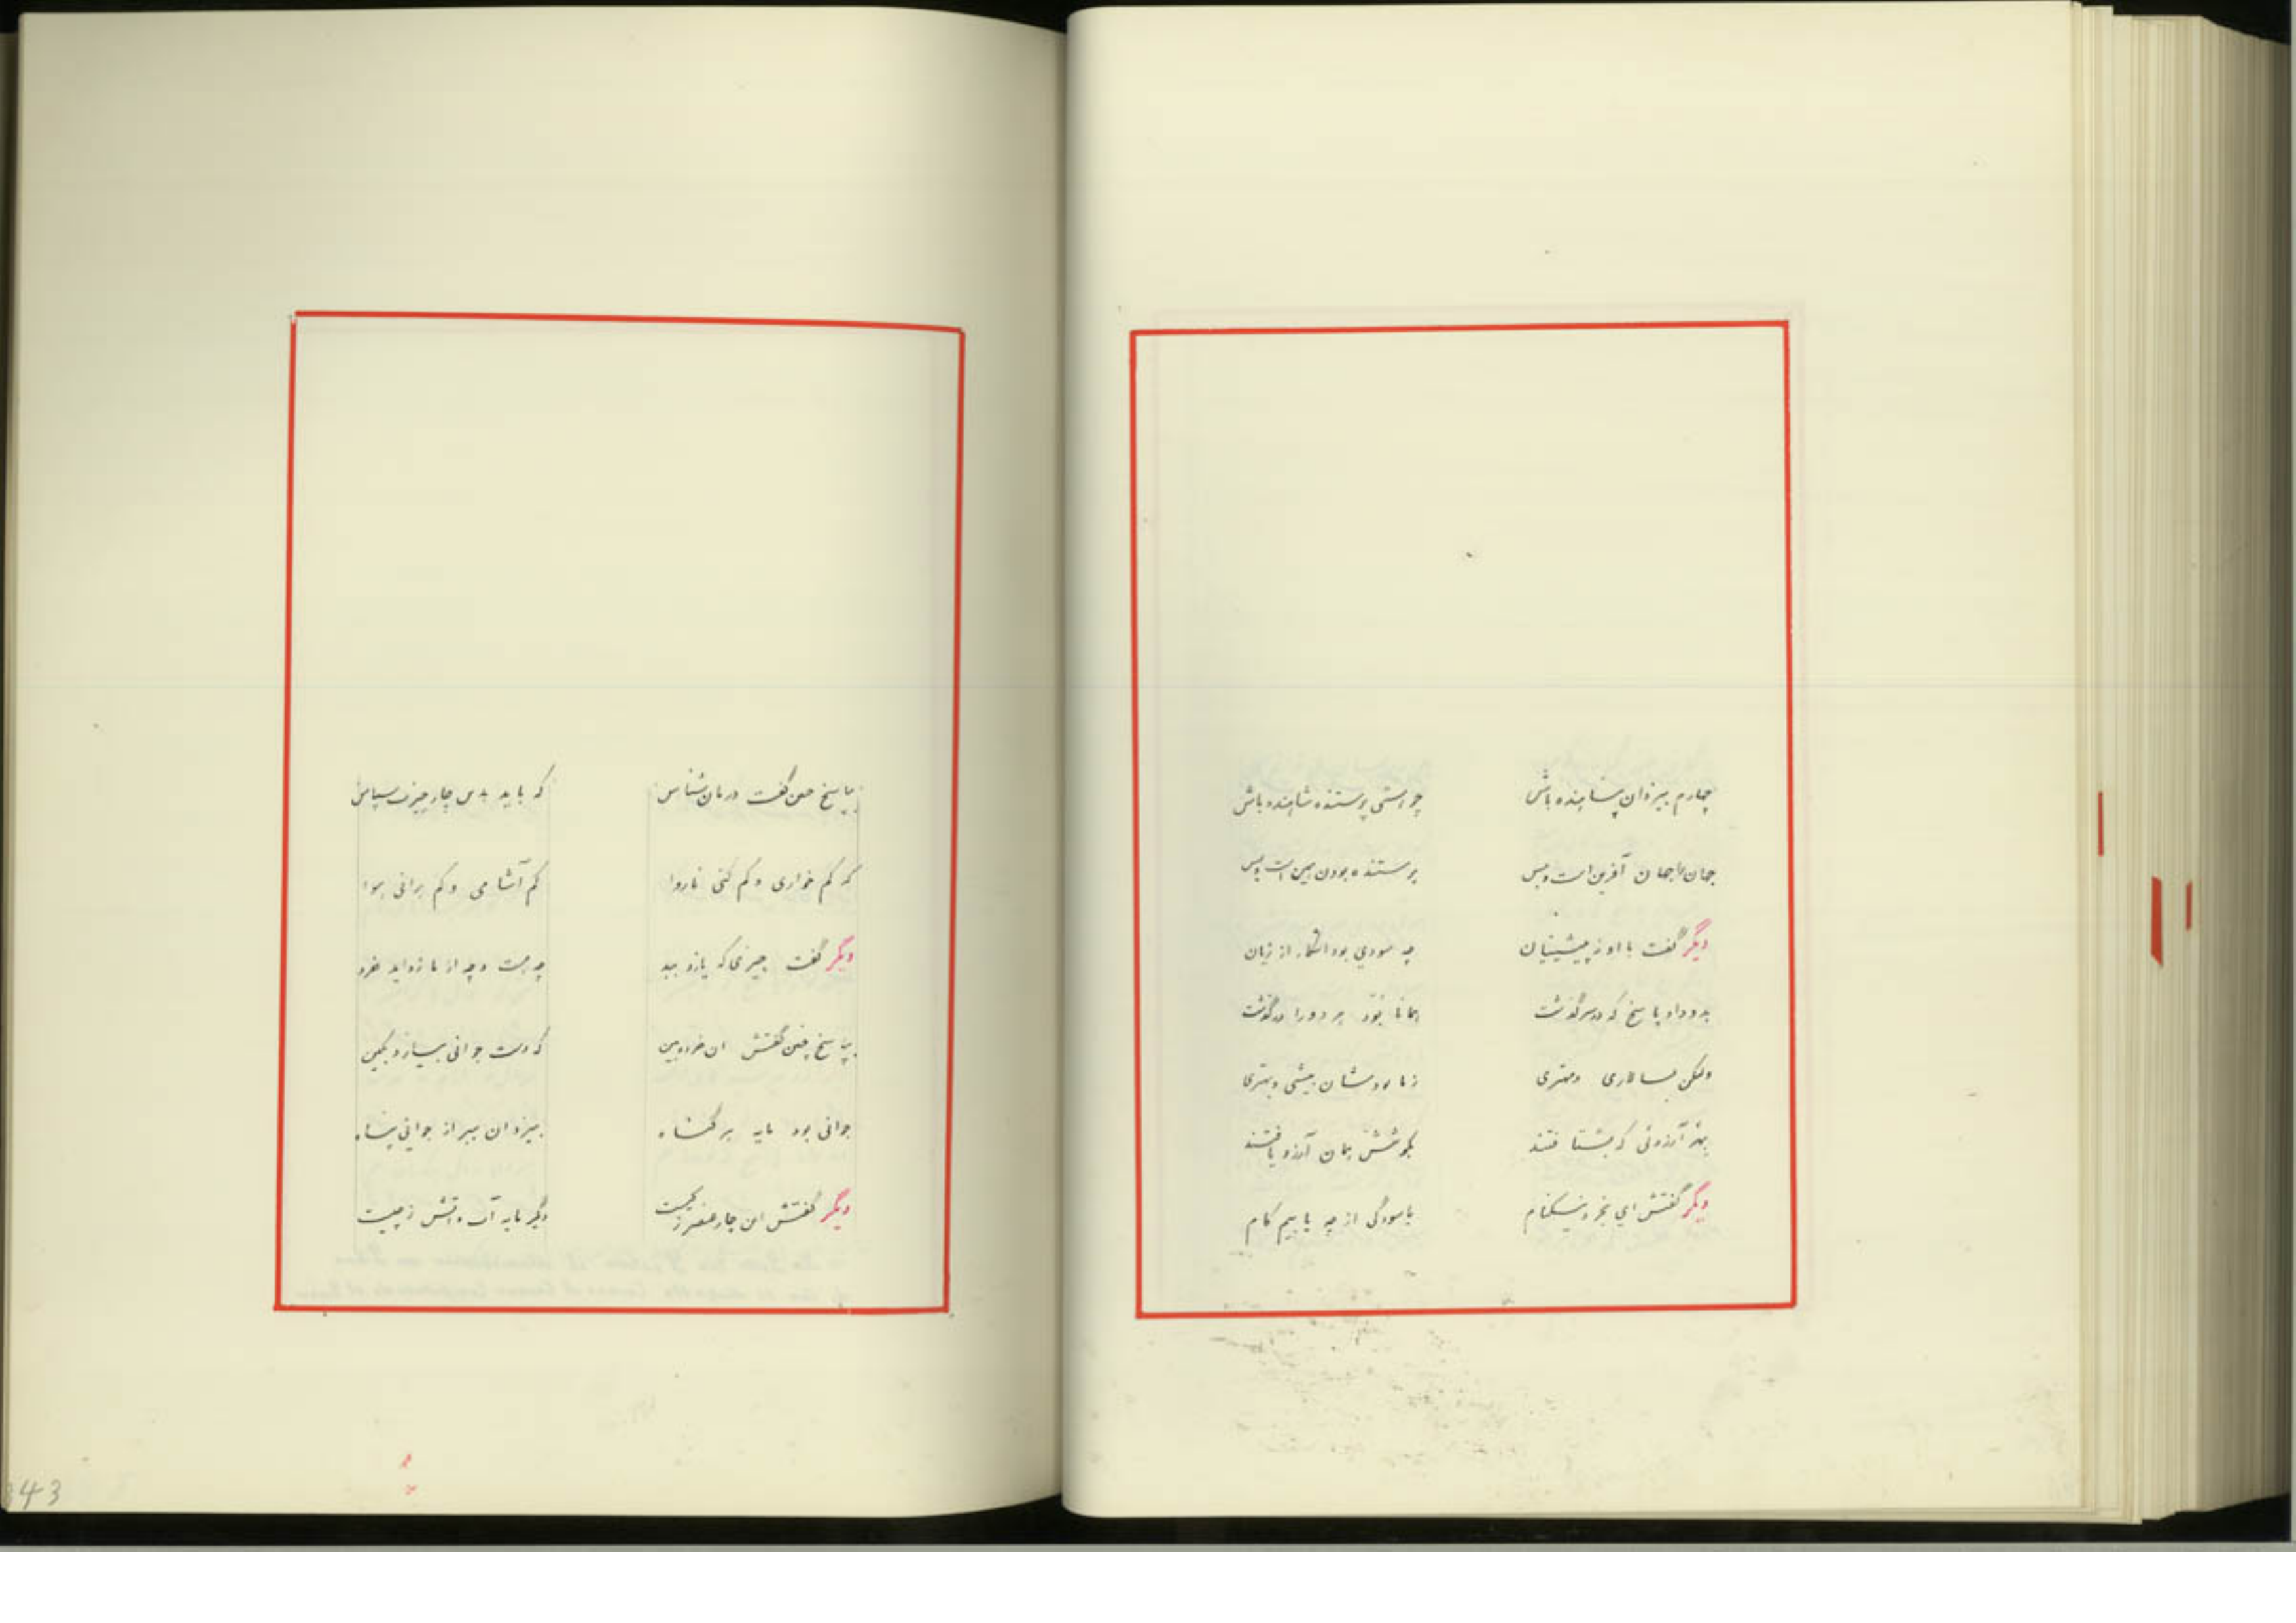 چهارم بیزدان پناهنده باش چو هستی پرستنده شاهنده باش
جهان را جهان آفرین است و بس پرستنده بودن همین است و بس
دیگر گفت با او ز پیشینیان چه سودی بود آشکار از زیان
بدو داد پاسخ که در سرگذشت همانا نبود هر دو را درگذشت
ولیکن بسالاری و مهتری بیشی و بهتری
بهر آرزوئی که بشتافتند بکوشش همان آرزو یافتند
دیگر گفتش ای بخرد نیکنام باسودگی از چه یابیم کام
بپاسخ چنین گفت درمان شناس که باید بدین چار چیزت سپاس
که کم خواری و کم کنی ناروا کم آشامی و کم برانی هوا
دیگر گفت چیزی که بازو چه هست و چه از ما خرد
بپاسخ چنین گفتش آن خرده بین که دست جوانی
جوانی بود مایه هر گناه بیزدان ببر از جوانی پناه
دیگر گفتش این چار عنصر ز کیست دگر مایه آب و آتش ز چیست
343